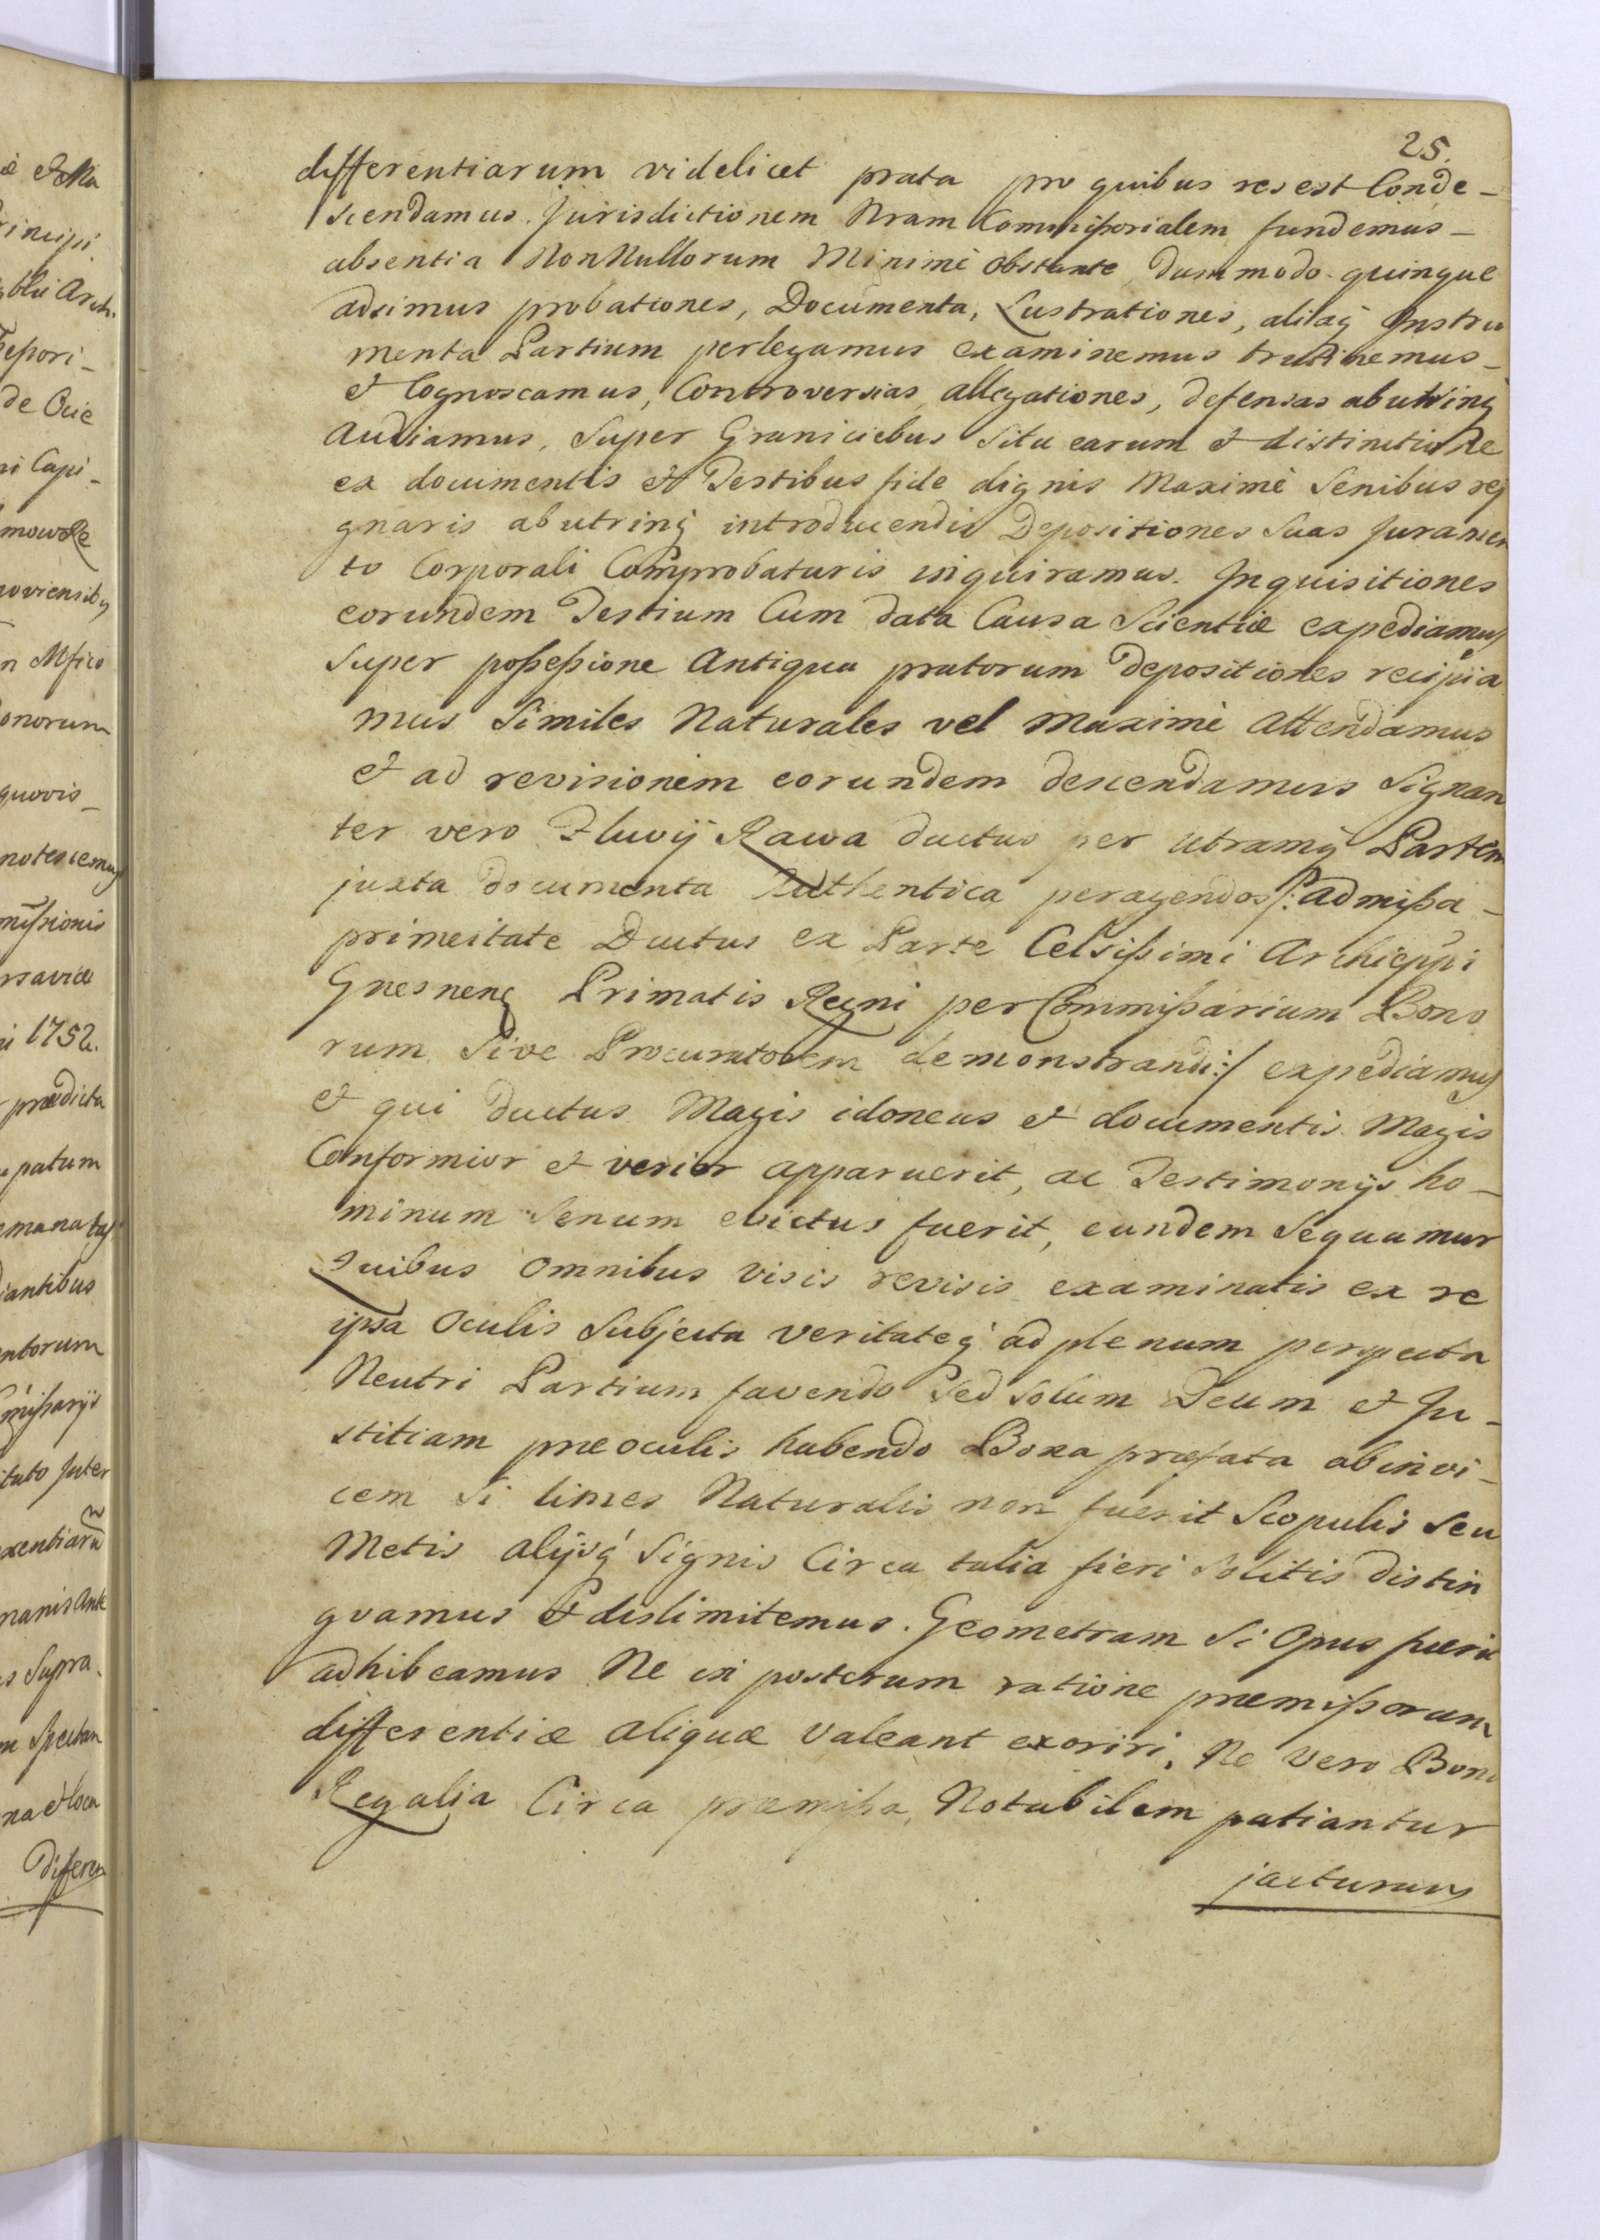 25.
differentiarum videlicet prata pro quibus res est Conde-
scendamus. Jurisdictionem Nram Commissorialem fundemus-
absentia NonNullorum Minimè obstante dummodo quinque
adsimus probationes, Documenta, Lustrationes, aliaq Instru
menta Partium perlegamus examinemus trutinemus-
et Cognoscamus, Controversias allegationes, defensas abutrinq
Audiamus, Super Graniciebus Situ earum et distinctione
ex documentis et Testibus fide dignis Maximè Senibus rej
gnaris abutrinq introducendis Depositiones Suas Juramen
to Corporali Comprobaturis inquiramus. Inquisitiones
eorundem Testium Cum data Causa Scientiæ expediamus
Super possessione Antiqua pratorum depositiones recipia
mus Similes Naturales vel maximè Attendamus
et ad revisionem eorundem descendamus Signan
ter vero Fluvij Rawa ductus per utramq Partem
juxta documenta Authentica peragendos /: admissa-
primeitate Ductus ex Parte Celsissimi Archieppi
Gnesnenq Primatis Regni per Commissarium Bono
rum Sive Procuratorem demonstrandi :/ expediamus
et qui ductus Magis idoneus et documentis Magis
Conformior et verior apparuerit, ac Testimonijs ho-
minum Senum evictus fuerit, eundem Sequamur
Quibus Omnibus visis revisis examinatis ex re
ipsa Oculis Subjecta veritateq ad plenum perspecta
Neutri Partium favendo Sed Solum Deum et Ju-
stitiam præoculis habendo Bona præfata abinvi-
cem Si limes Naturalis non fuerit Scopulis Seu
Metis alijsq Signis Circa talia fieri Solitis distin
guamus et dislimitemus. Geometram Si Opus fuerit
adhibeamus Ne in posterum ratione præmissorum
differentiæ aliquæ valeant exoriri, Ne Vero Bona
Regalia Circa præmissa Notabilem patiantur
jacturam